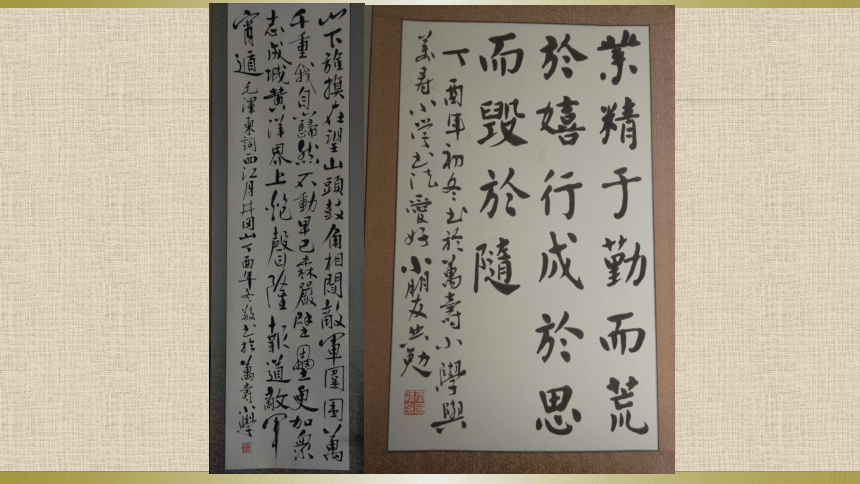 山下旌旗在望山頭鼓角相聞敵軍圍困萬
千重我自巋然不動早已森嚴壁壘更加衆
志成城黃洋界上炮聲隆報道敵軍
宵遁 毛澤東詞西江月井岡山丁酉年冬敬书於萬壽小學
業精于勤而荒
於嬉行成於思
而毀於隨
丁酉年初冬书於萬壽小學與
萬寿小学书法愛好小朋友共勉